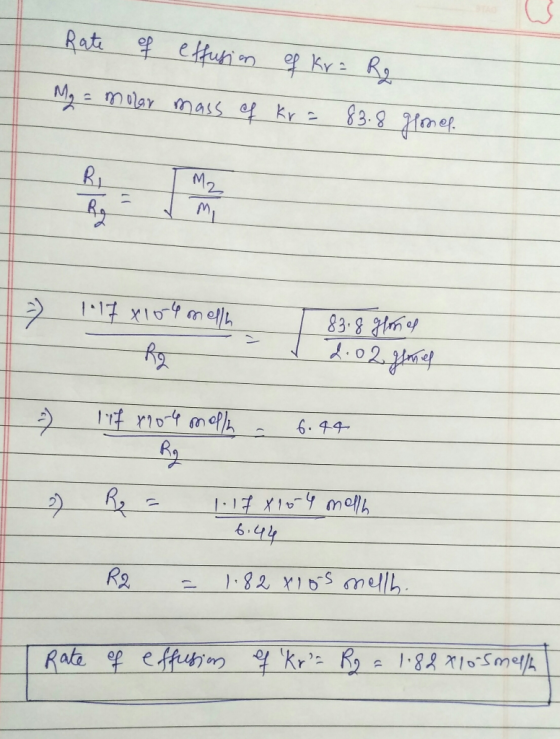 Rate of effusion of Kr = R2
M2 = molar mass of Kr = 83.8 g/mol.
R1/R2 = √(M2/M1)
⇒ 1.17 × 10-4 mol/h / R2 = √(83.8 g/mol / 2.02 g/mol)
⇒ 1.17 × 10-4 mol/h / R2 = 6.44
⇒ R2 = 1.17 × 10-4 mol/h / 6.44
R2 = 1.82 × 10-5 mol/h.
Rate of effusion of 'Kr' = R2 = 1.82 × 10-5 mol/h